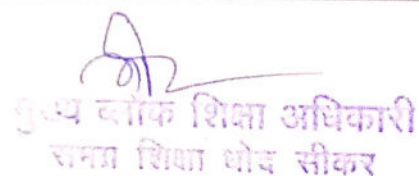 मुख्य ब्लॉक शिक्षा अधिकारी
समग्र शिक्षा धोद सीकर